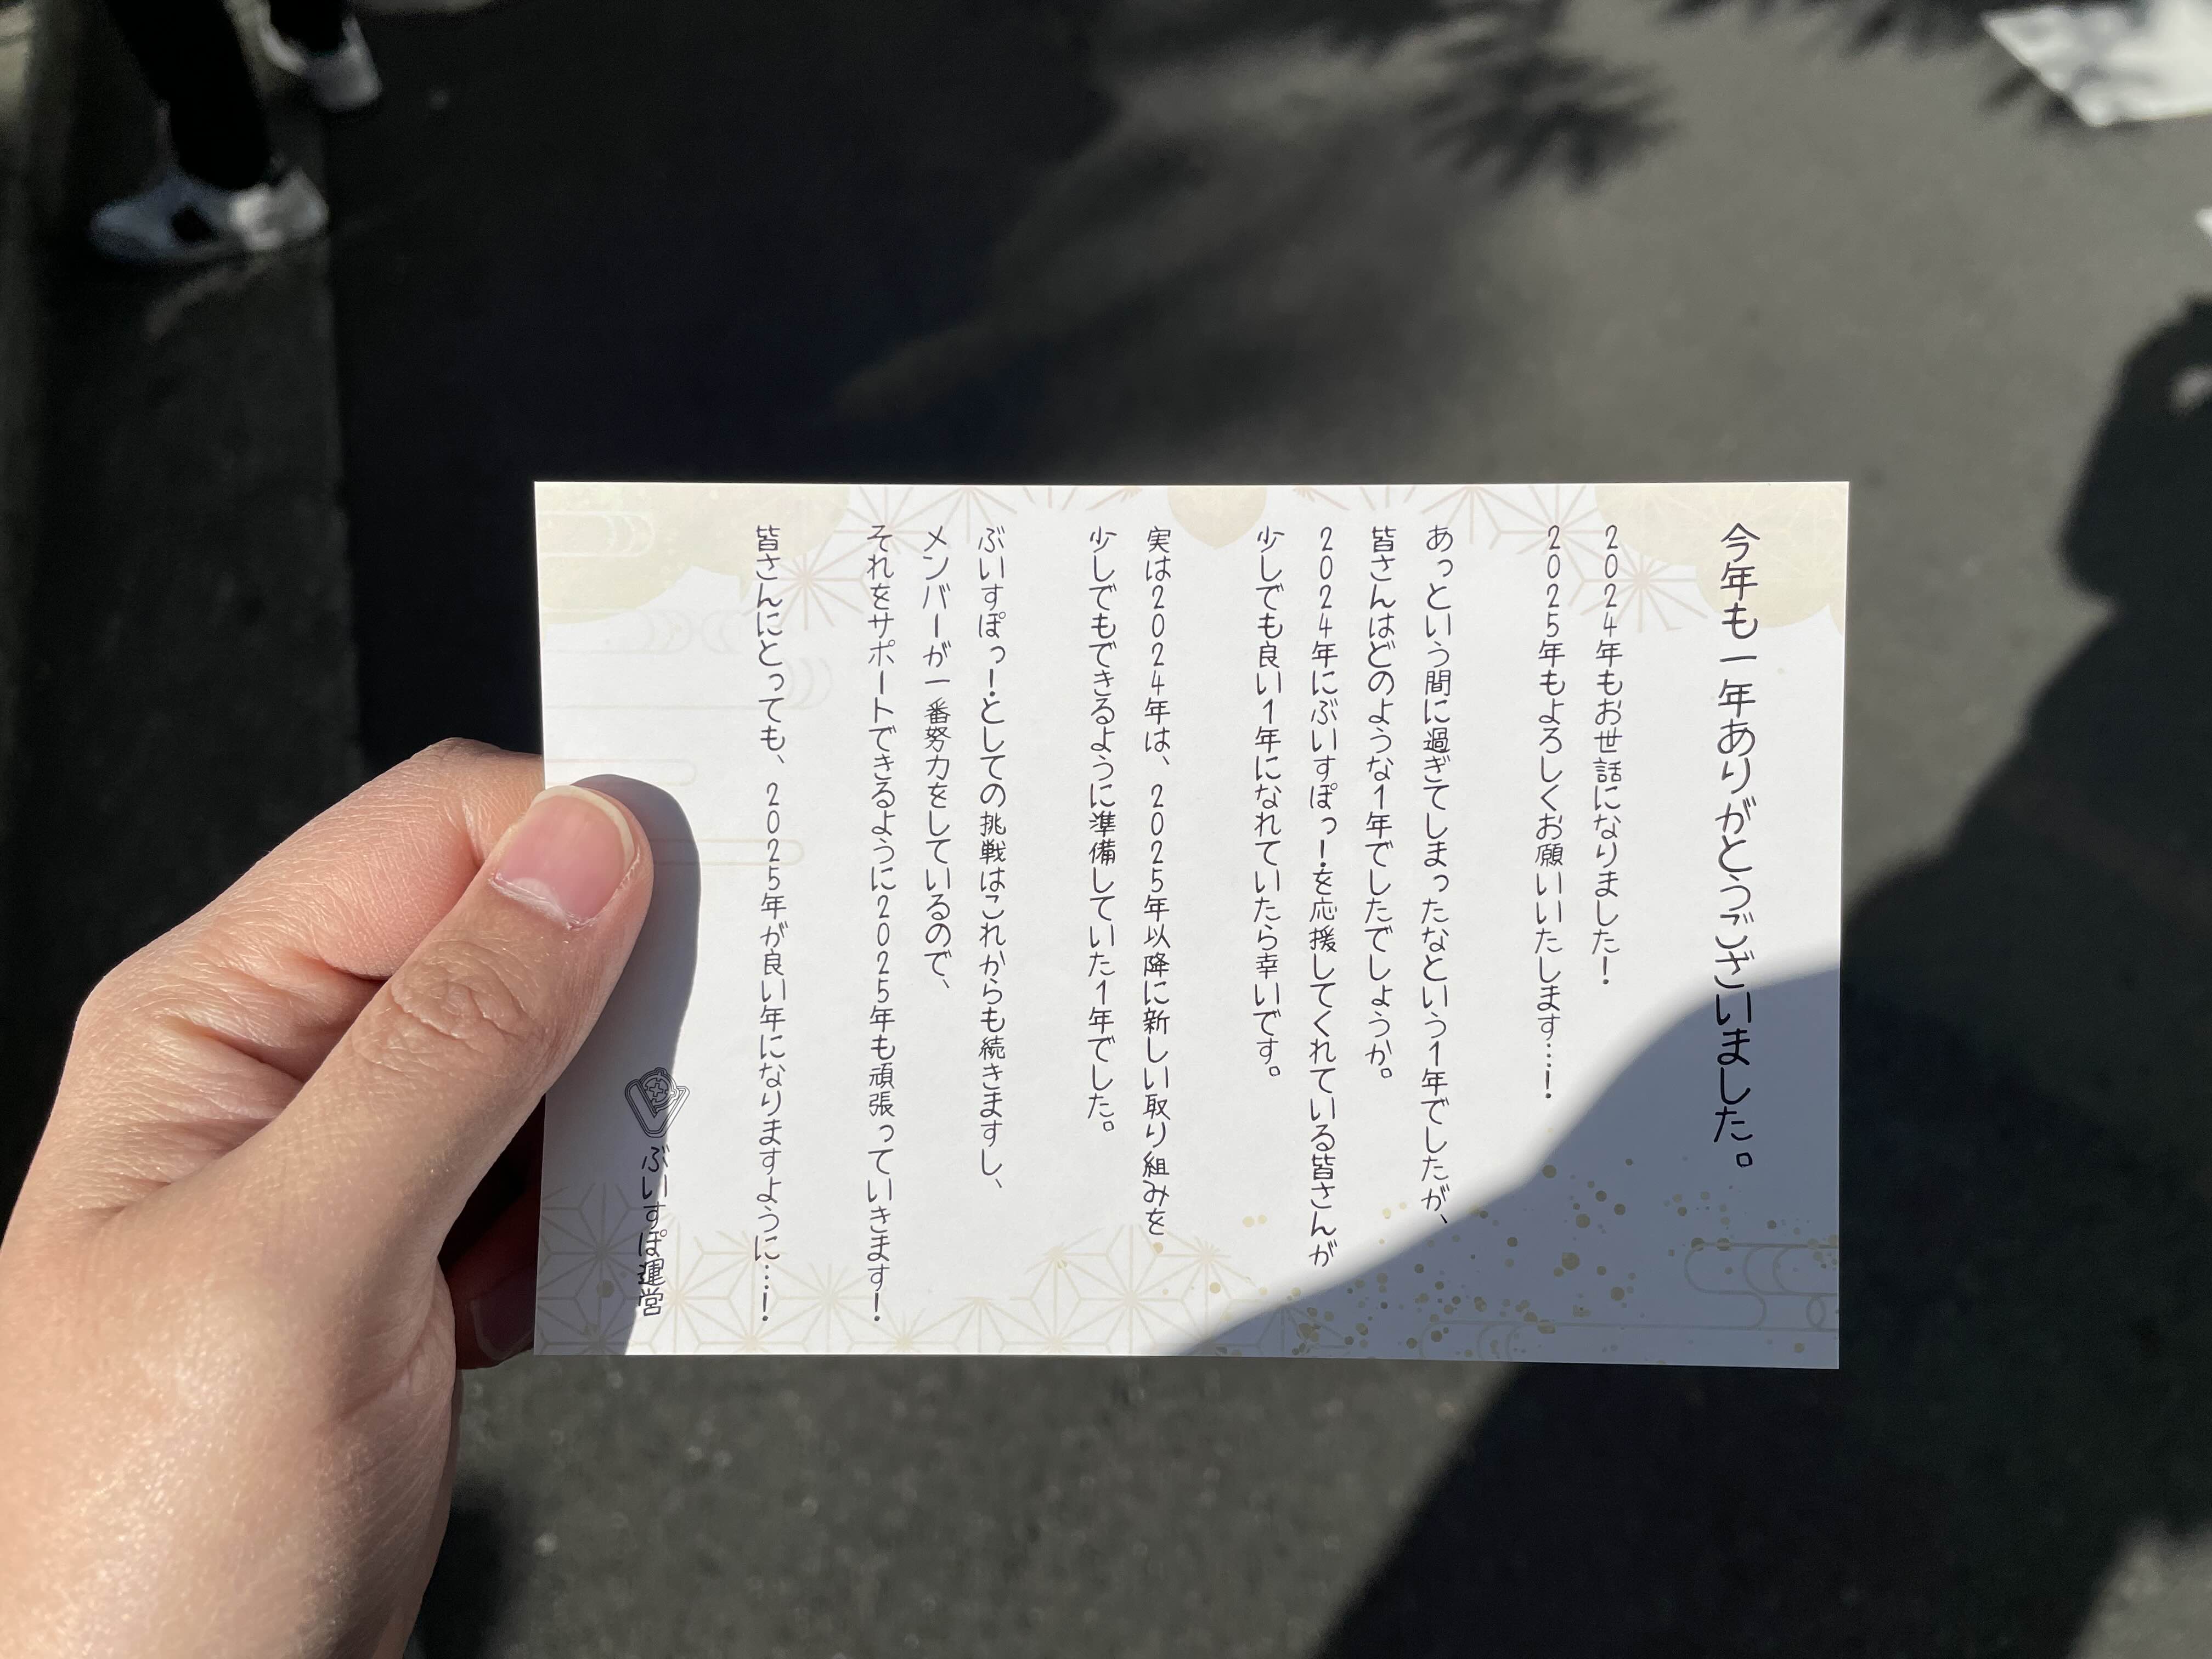 今年も一年ありがとうございました。
2024年もお世話になりました!
2025年もよろしくお願いいたします…!
あっという間に過ぎてしまったなという1年でしたが、
皆さんはどのような1年でしたでしょうか。
2024年にぶいすぽっ!を応援してくれている皆さんが
少しでも良い1年になれていたら幸いです。
実は2024年は、2025年以降に新しい取り組みを
少しでもできるように準備していた1年でした。
ぶいすぽっ!としての挑戦はこれからも続きますし、
メンバーが一番努力をしているので、
それをサポートできるように2025年も頑張っていきます!
皆さんにとっても、2025年が良い年になりますように…!
ぶいすぽ運営